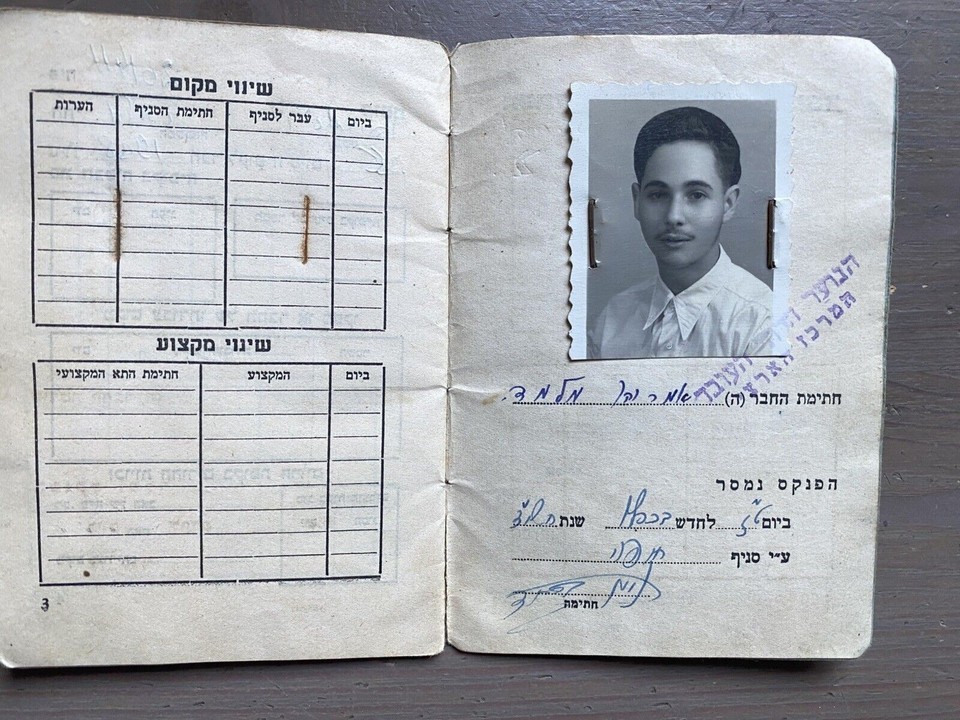 שינוי מקום
ביום עבר לסניף חתימת הסניף הערות
שינוי מקצוע
ביום המקצוע חתימת התא המקצועי
3
הנוער העובד
המרכז הארצי
חתימת החבר (ה) מלמד
הפנקס נמסר
ביום ט"ז לחדש שנת
ע״י סניף חיפה
חתימה